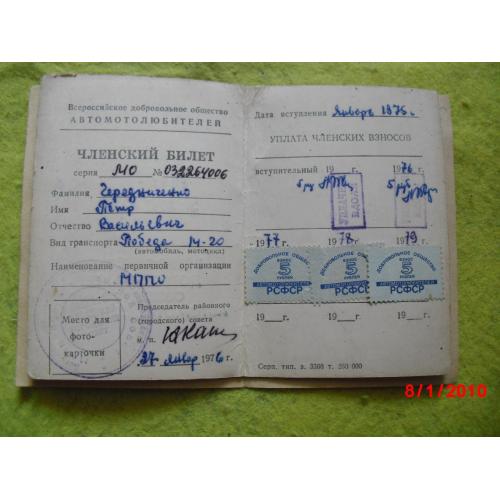 Всероссийское добровольное общество
АВТОМОТОЛЮБИТЕЛЕЙ
ЧЛЕНСКИЙ БИЛЕТ
серия МО № 032264006
Фамилия Чередниченко
Имя Пётр
Отчество Васильевич
Вид транспорта Победа М-20
(автомобиль, мотоцикл)
Наименование первичной организации
МППО
Место для
фото-
карточки
Председатель районного
(городского) совета
м. п.
27 январ 1976 г.
Дата вступления Январь 1976 г.
УПЛАТА ЧЛЕНСКИХ ВЗНОСОВ
вступительный 19 г. 1976
5 руб 5 руб
1977 1978 1979
ДОБРОВОЛЬНОЕ ОБЩЕСТВО ДОБРОВОЛЬНОЕ ОБЩЕСТВО ДОБРОВОЛЬНОЕ ОБЩЕСТВО
ВЗНОС ВЗНОС ВЗНОС
5 5 5
РУБЛЕЙ РУБЛЕЙ РУБЛЕЙ
АВТОМОТОЛЮБИТЕЛЕЙ АВТОМОТОЛЮБИТЕЛЕЙ АВТОМОТОЛЮБИТЕЛЕЙ
РСФСР РСФСР РСФСР
19 г. 19 г. 19 г.
Серп. тип. з. 3308 т. 250 000
8/1/2010